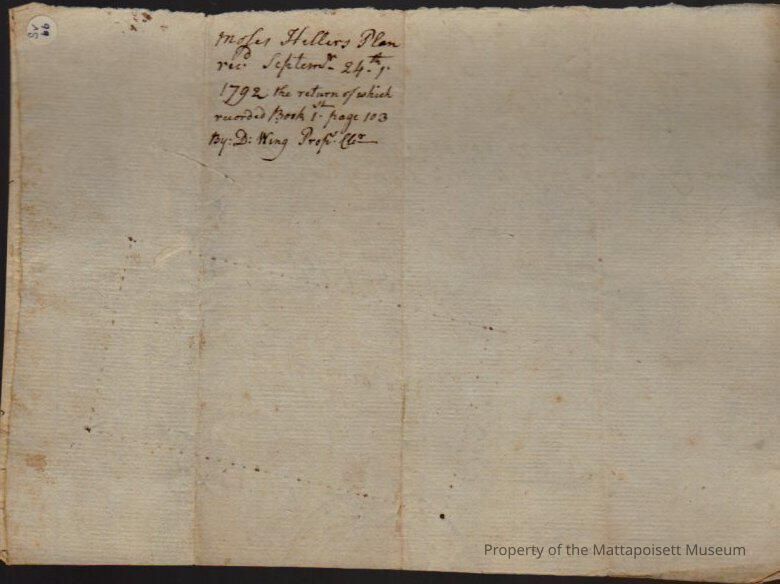 SV
66
Moses Hellers Plan
recd Septemr 24th
1792 the return of which
recorded Book 1st page 103
By: D: Wing Propr Cler
Property of the Mattapoisett Museum